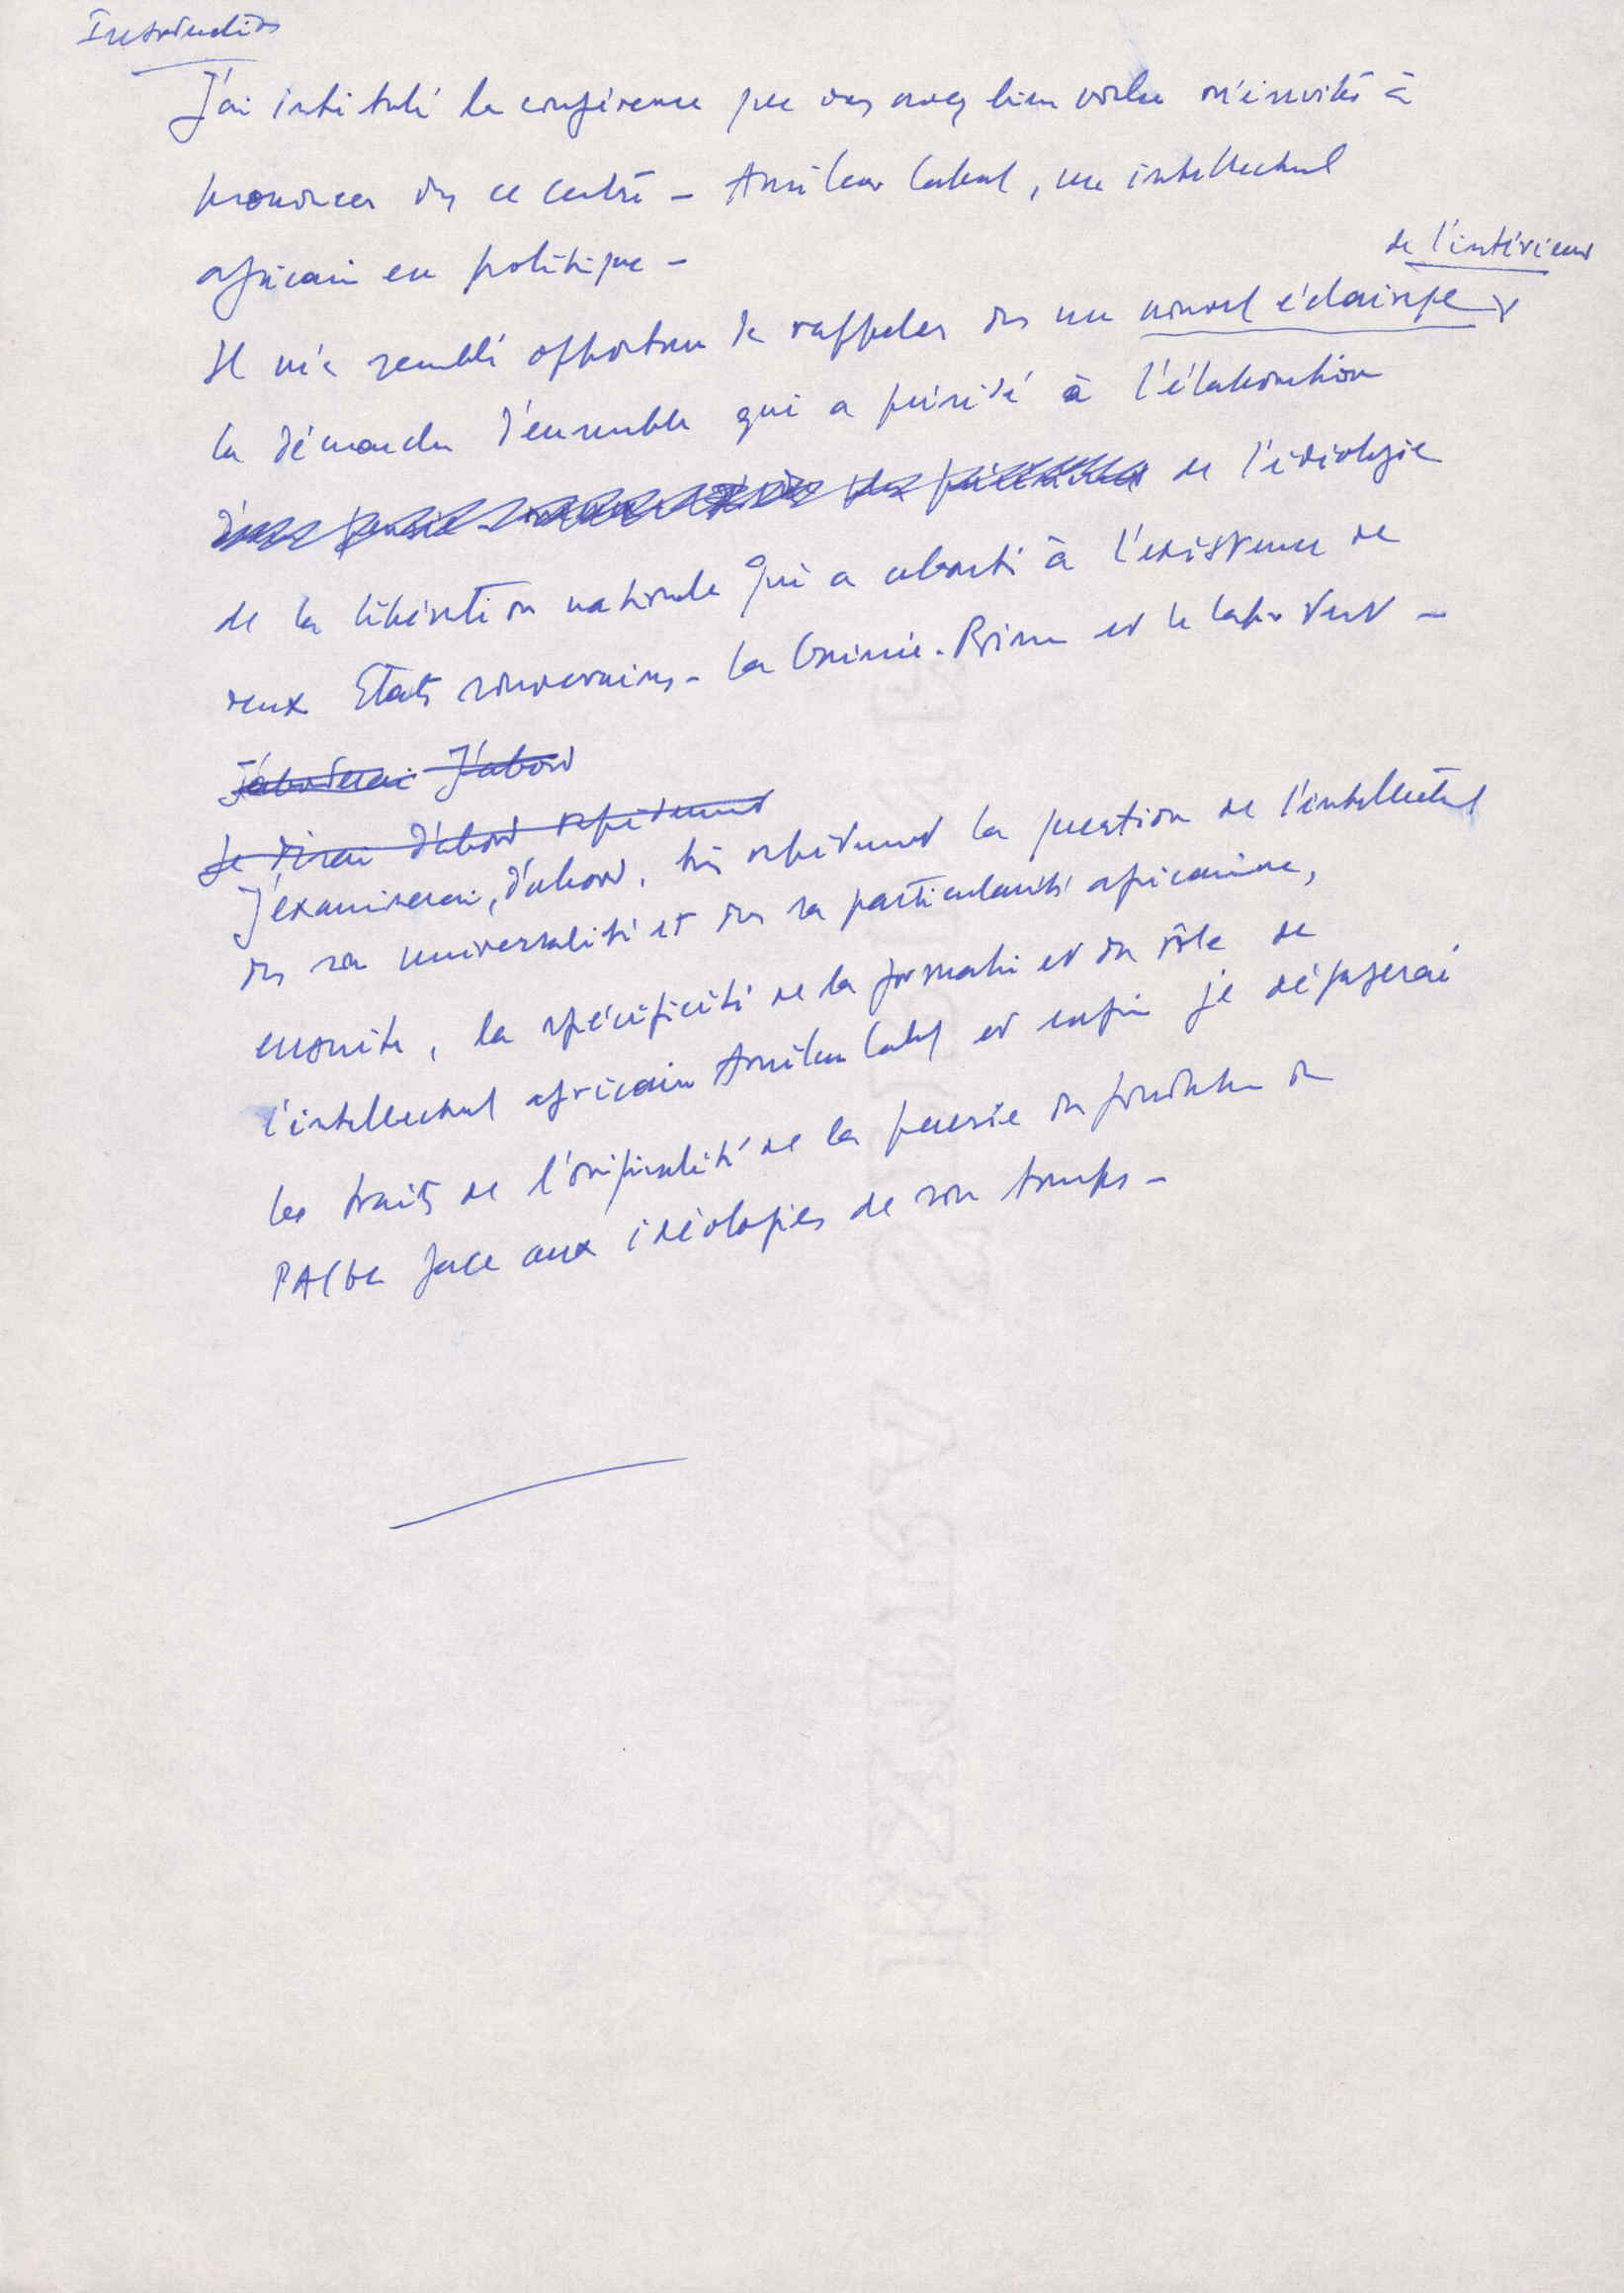 Introduction
J'ai intitulé la conférence que vous avez bien voulu m'inviter à
prononcer ds ce centre – Amilcar Cabral, un intellectuel
africain en politique –
de l'intérieur
Il m'a semblé opportun de rappeler ds un nouvel éclairage
la démarche d'ensemble qui a présidé à l'élaboration
de l'idéologie
de la libération nationale qui a abouti à l'existence de
deux Etats souverains – la Guinée-Bissau et le Cap-Vert –
J'aborderai d'abord
Je dirai d'abord rapidement
J'examinerai, d'abord, très rapidement la question de l'intellectuel
ds son universalité et ds sa particularité africaine,
ensuite, la spécificité de la formation et du rôle de
l'intellectuel africain Amilcar Cabral et enfin je dégagerai
les traits de l'originalité de la pensée du fondateur du
PAIGC face aux idéologies de son temps –